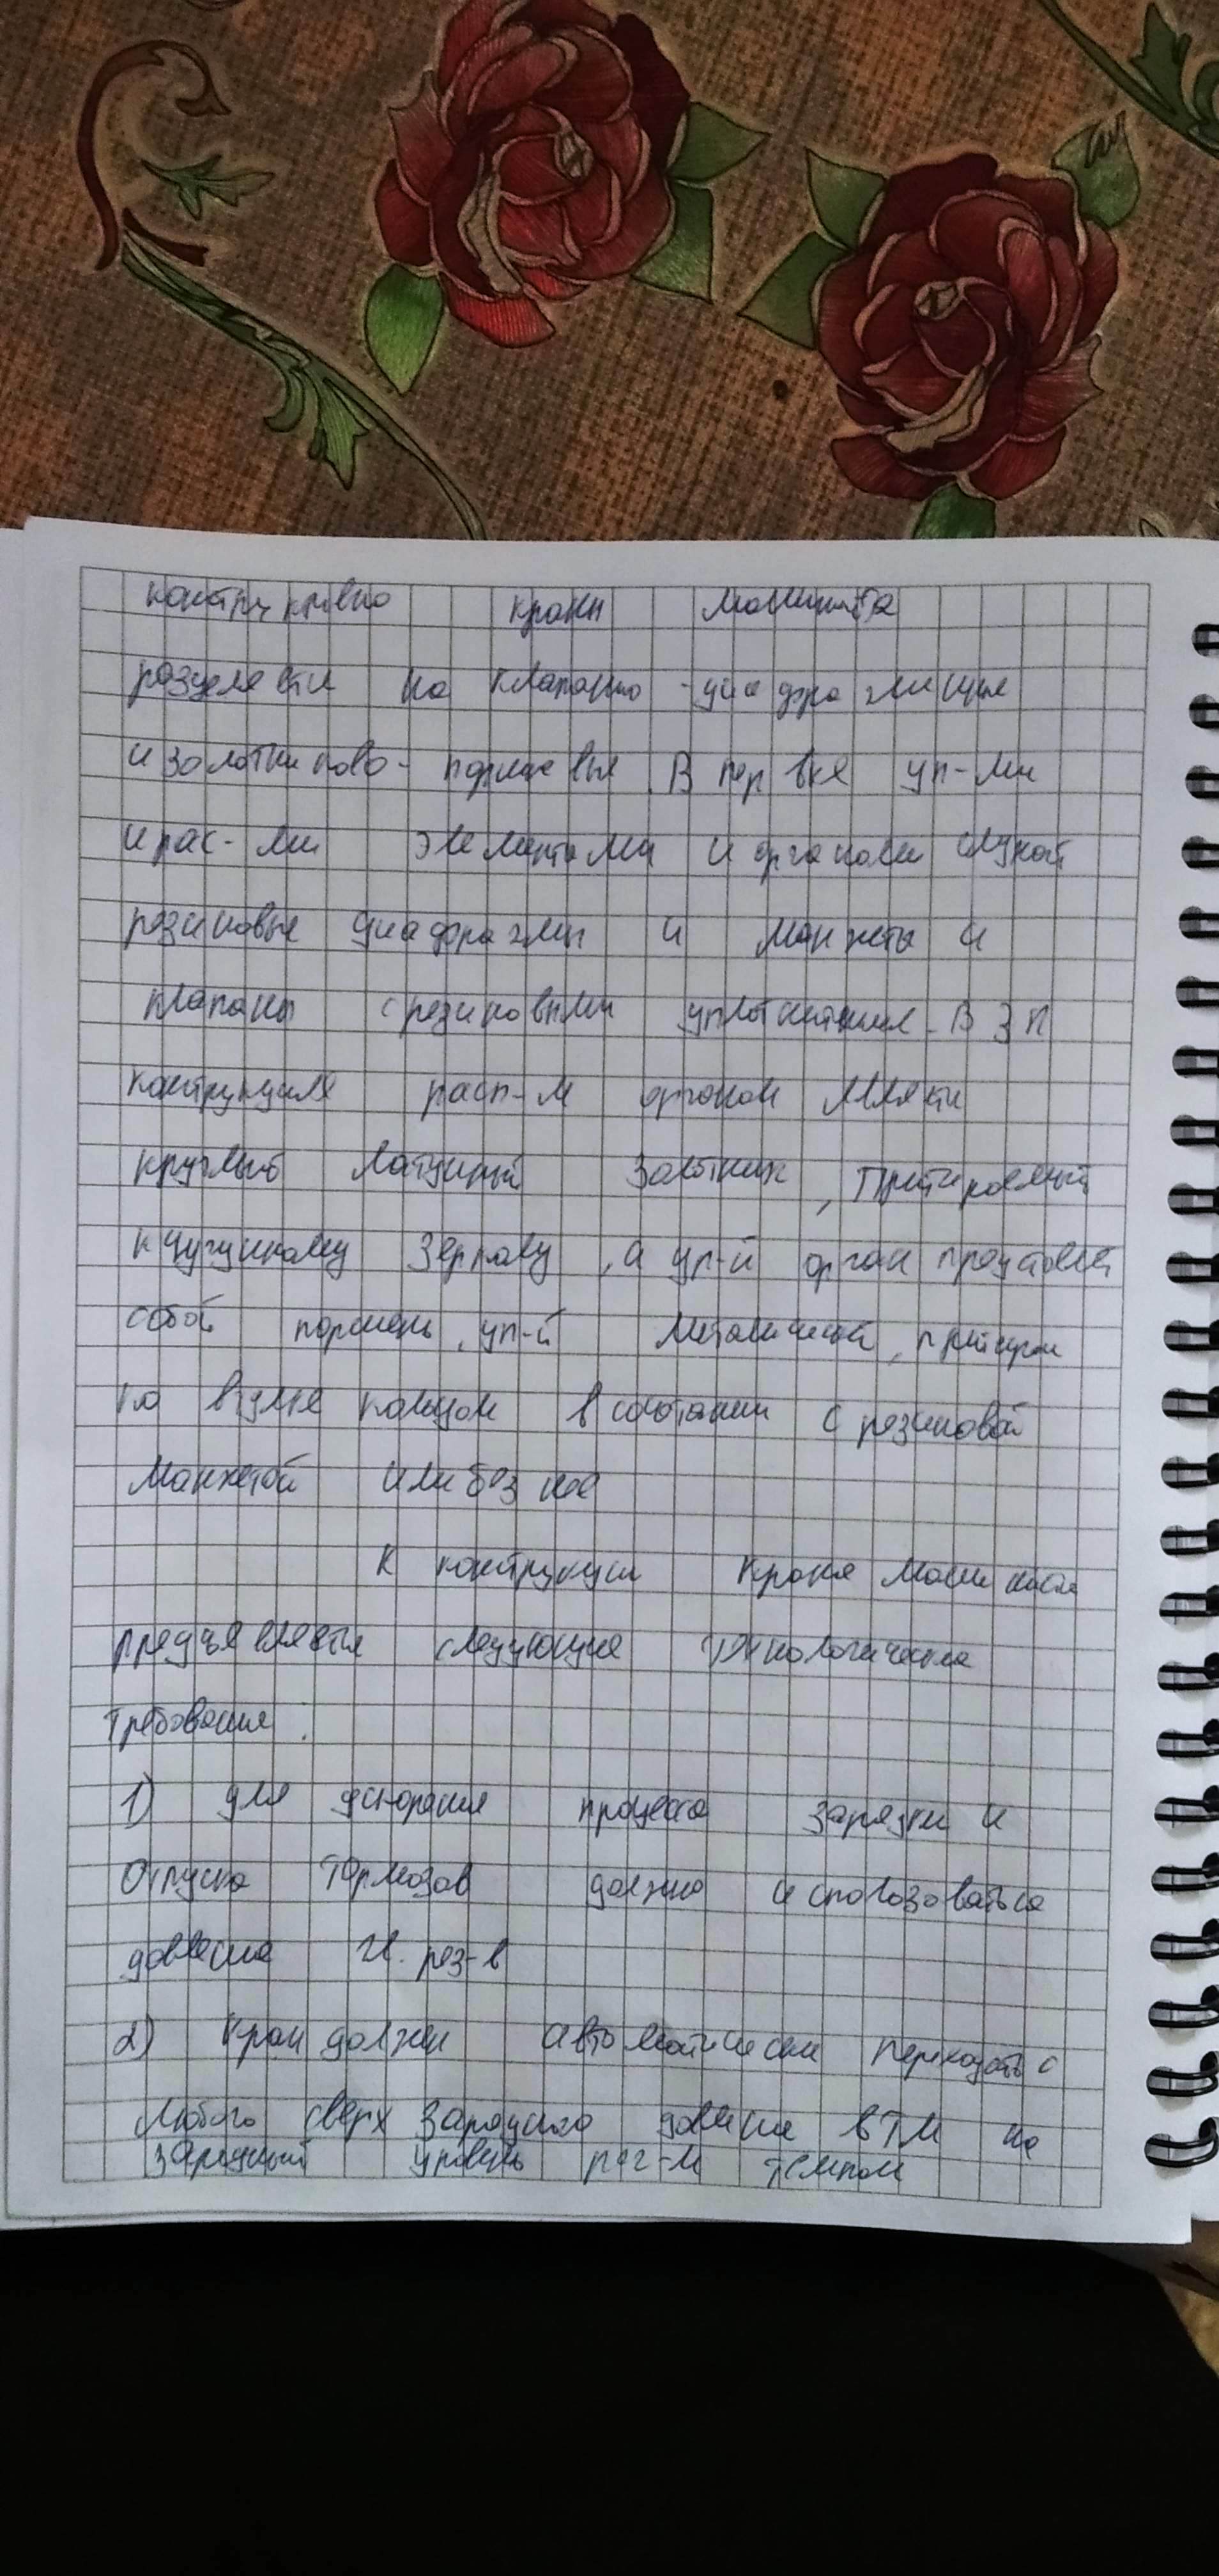 конструктивно краны машиниста
разделяются на клапанно-диафрагменные
и золотниково-поршневые. В первых уп-ми
и рас-ми элементами и органами служат
резиновые диафрагмы и манжеты и
клапаны с резиновыми уплотнениями. В ЗП
конструкциях расп-м органом является
круглый латунный золотник, притираемый
к чугунному зеркалу, а уп-й орган представляет
собой поршень, уп-й металический,
по втулке кольцом в сочетании с резиновой
манжетой или без нее
К конструкции крана машиниста
предъявляются следующие технологические
требования:
1) для ускорения процесса зарядки и
отпуска тормозов должно использоваться
давление гл. рез-в
2) Кран должен автоматически переходить с
любого сверх зарядного давления в ТМ на
зарядный уровень рег-м темпом